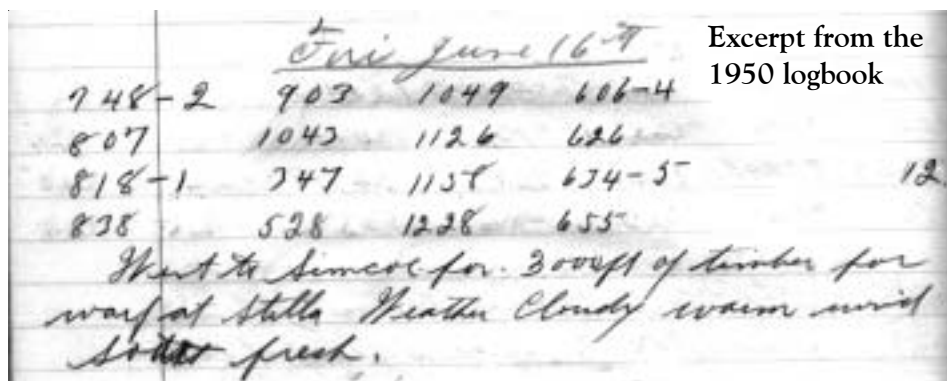 Fri June 16th
Excerpt from the
1950 logbook
748-2 903 1049 606-4
807 1043 1126 626
818-1 347 1158 634-5 12
838 528 1228 655
Went to Simcoe for. 3000ft of timber for
warf at Stella Weather Cloudy warm wind
fresh.